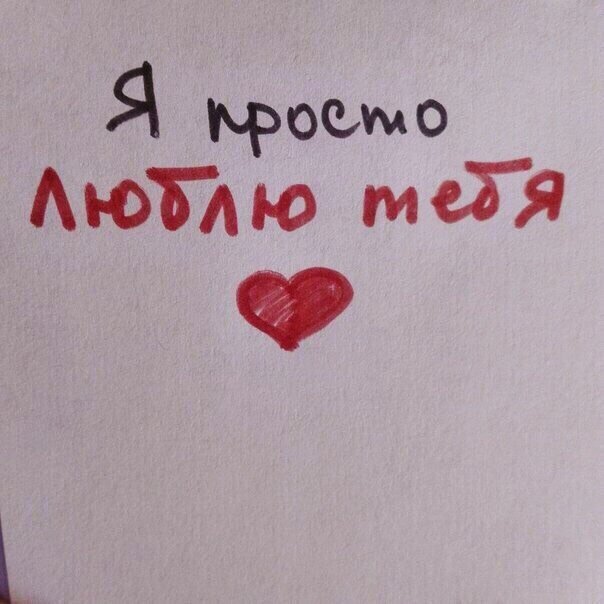 Я просто
Люблю тебя